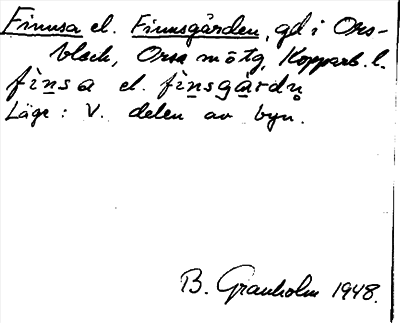 Finnsa el. Finnsgården, gd i Ors-
bleck, Orsa mötg, Kopparb. l.
fìn̲sa el. fìn̲sgårdn̥
Läge: V. delen av byn.
B. Granholm 1948.